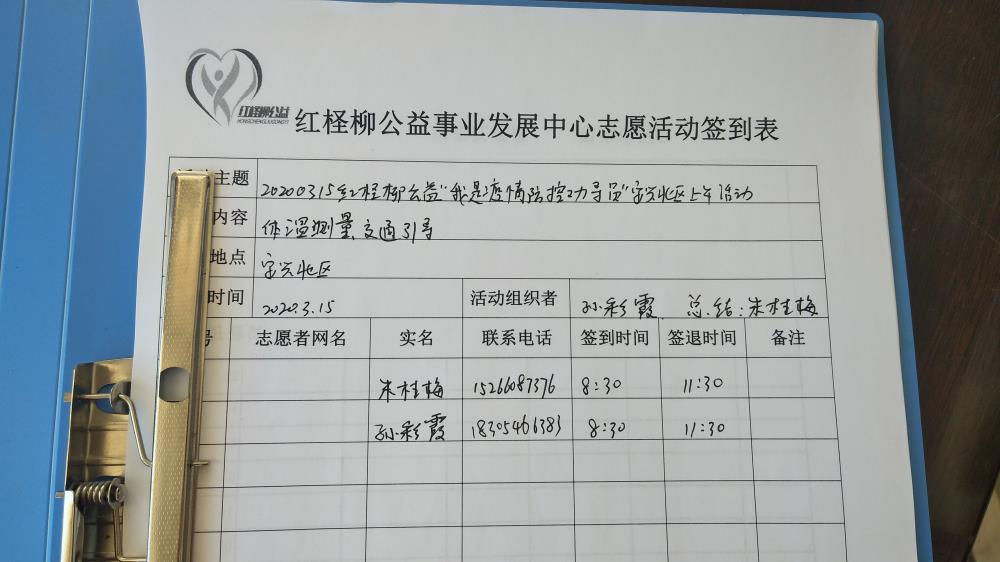 红柽柳公益
HONGCHENGLIUGONGYI
红柽柳公益事业发展中心志愿活动签到表
主题 20200315红柽柳公益“我是疫情防控劝导员”安兴北区上午活动
内容 体温测量、交通引导
地点 安兴北区
时间 2020.3.15 活动组织者 孙彩霞 总结:朱桂梅
号 志愿者网名 实名 联系电话 签到时间 签退时间 备注
朱桂梅 15266087376 8:30 11:30
孙彩霞 18305466383 8:30 11:30